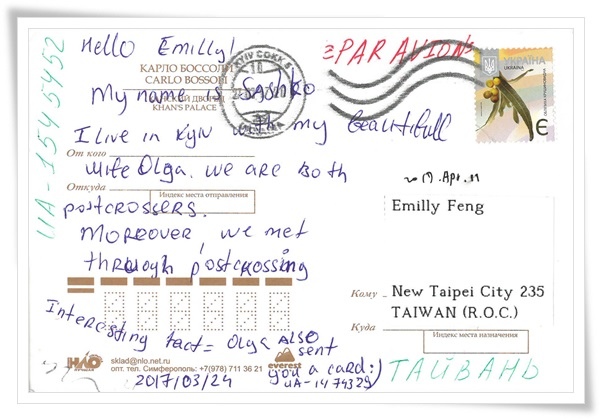 UA-1545452
Hello Emilly!
PAR AVION
УКРАЇНА
UKRAINA
Є
КАРЛО БОССОЛИ
CARLO BOSSOLI
My name is Sashko
ХАНСКИЙ ДВОРЕЦ
KHAN'S PALACE
I live in Kyiv with my beautifull
От кого
wife Olga. We are both
Откуда
Индекс места отправления
postcrossers.
Moreover, we met
through postcrossing
2017.Apr.11
Emilly Feng
Кому
New Taipei City 235
TAIWAN (R.O.C.)
Куда
Индекс места назначения
Interesting fact = Olga also
sent
you a card:)
UA-1474329
НЛО
sklad@nlo.net.ru
опт. тел. Симферополь: +7(978) 711 36 21
everest
2017/03/24
ТАЙВАНЬ